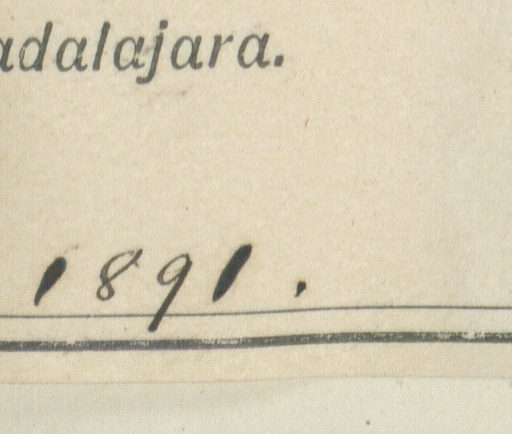 adalajara.
1891.